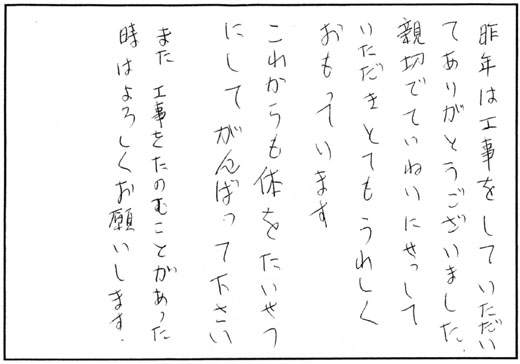 昨年は工事をしていただい
てありがとうございました。
親切でていねいにせっして
いただきとてもうれしく
おもっています
これからも体をたいせつ
にしてがんばって下さい
また工事をたのむことがあった
時はよろしくお願いします.